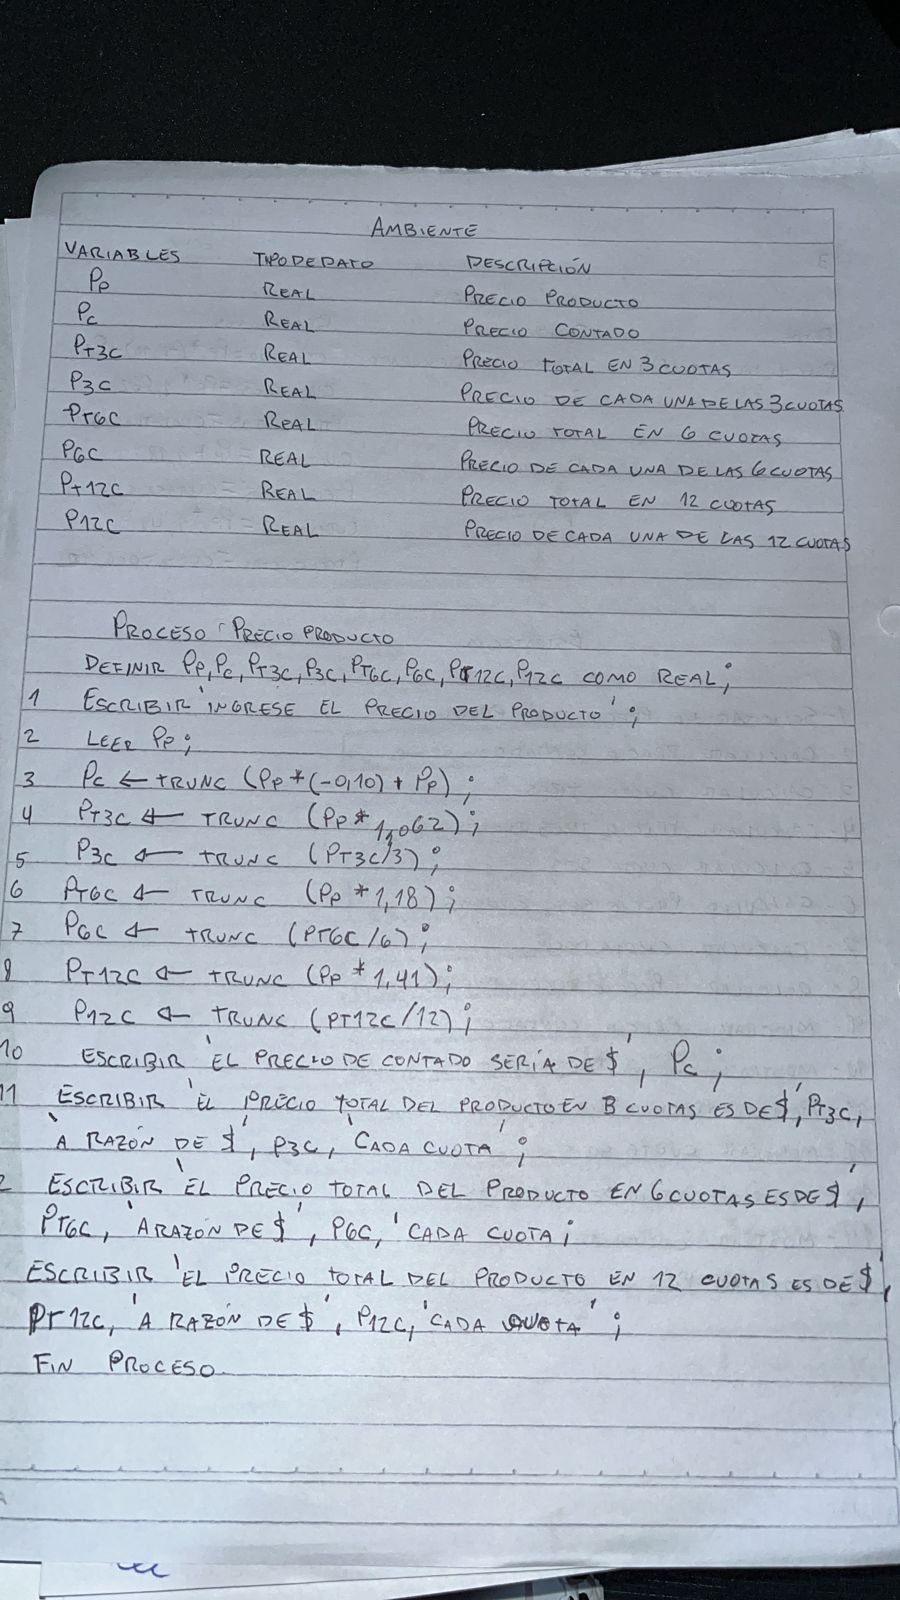 AMBIENTE
VARIABLES TIPO DE DATO DESCRIPCIÓN
Pp REAL PRECIO PRODUCTO
Pc REAL PRECIO CONTADO
PT3C REAL PRECIO TOTAL EN 3 CUOTAS
P3C REAL PRECIO DE CADA UNA DE LAS 3 CUOTAS
PT6C REAL PRECIO TOTAL EN 6 CUOTAS
P6C REAL PRECIO DE CADA UNA DE LAS 6 CUOTAS
PT12C REAL PRECIO TOTAL EN 12 CUOTAS
P12C REAL PRECIO DE CADA UNA DE LAS 12 CUOTAS
PROCESO: PRECIO PRODUCTO
DEFINIR Pp, Pc, PT3C, P3C, PT6C, P6C, PT12C, P12C COMO REAL;
1 ESCRIBIR 'INGRESE EL PRECIO DEL PRODUCTO';
2 LEER Pp;
3 Pc ← TRUNC (Pp*(-0,10) + Pp);
4 PT3C ← TRUNC (Pp * 1,062);
5 P3C ← TRUNC (PT3C/3);
6 PT6C ← TRUNC (Pp * 1,18);
7 P6C ← TRUNC (PT6C/6);
8 PT12C ← TRUNC (Pp * 1,41);
9 P12C ← TRUNC (PT12C/12);
10 ESCRIBIR 'EL PRECIO DE CONTADO SERÍA DE $', Pc;
11 ESCRIBIR 'EL PRECIO TOTAL DEL PRODUCTO EN 3 CUOTAS ES DE $', PT3C,
'A RAZÓN DE $', P3C, 'CADA CUOTA';
2 ESCRIBIR 'EL PRECIO TOTAL DEL PRODUCTO EN 6 CUOTAS ES DE $',
PT6C, 'A RAZÓN DE $', P6C, 'CADA CUOTA;
ESCRIBIR 'EL PRECIO TOTAL DEL PRODUCTO EN 12 CUOTAS ES DE $',
PT12C, 'A RAZÓN DE $', P12C, 'CADA CUOTA';
FIN PROCESO